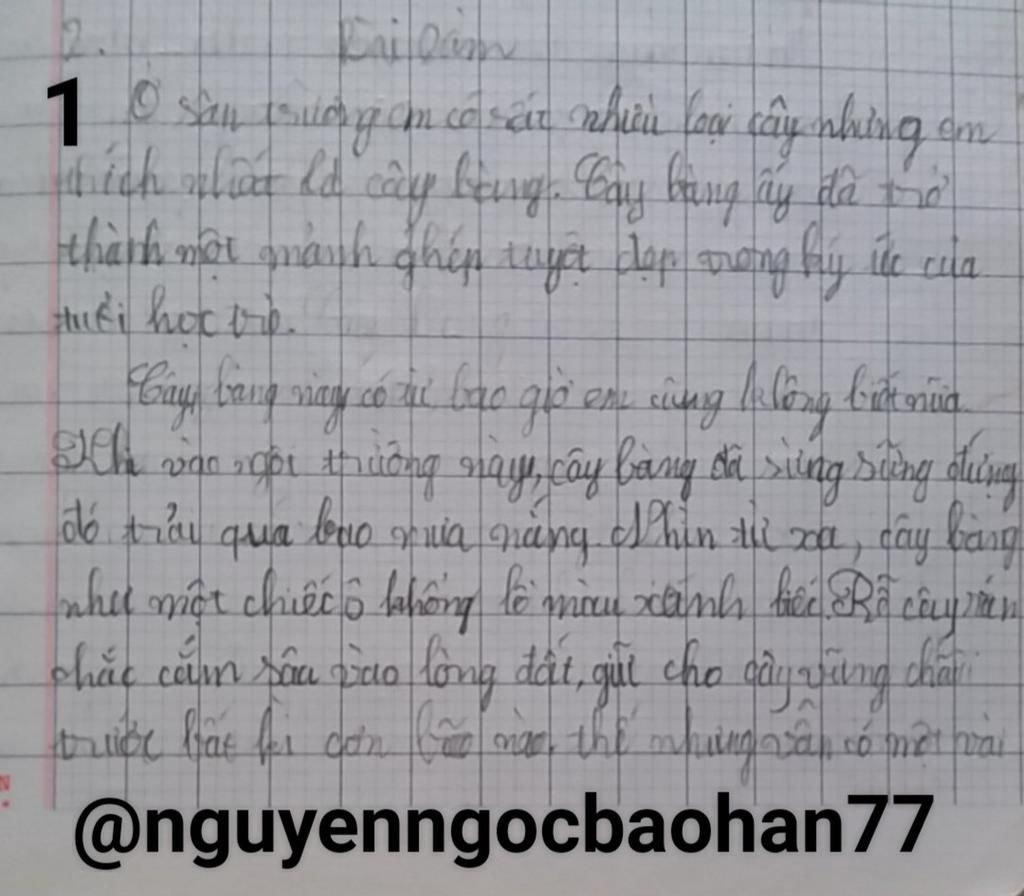 2. Bài làm
1
Ở sân trường em có rất nhiều loại cây nhưng em
thích nhất là cây bàng. Cây bàng ấy đã trở
thành một mảnh ghép tuyệt đẹp trong ký ức của
tuổi học trò.
Cây bàng này có từ bao giờ em cũng không biết nữa.
Khi vào ngôi trường này, cây bàng đã sừng sững đứng
đó trải qua bao mưa nắng. Nhìn từ xa, cây bàng
như một chiếc ô khổng lồ màu xanh biếc. Rễ cây rắn
chắc cắm sâu vào lòng đất, giữ cho cây vững chãi
trước bất kì cơn bão nào, thế nhưng vẫn có một vài
@nguyenngocbaohan77